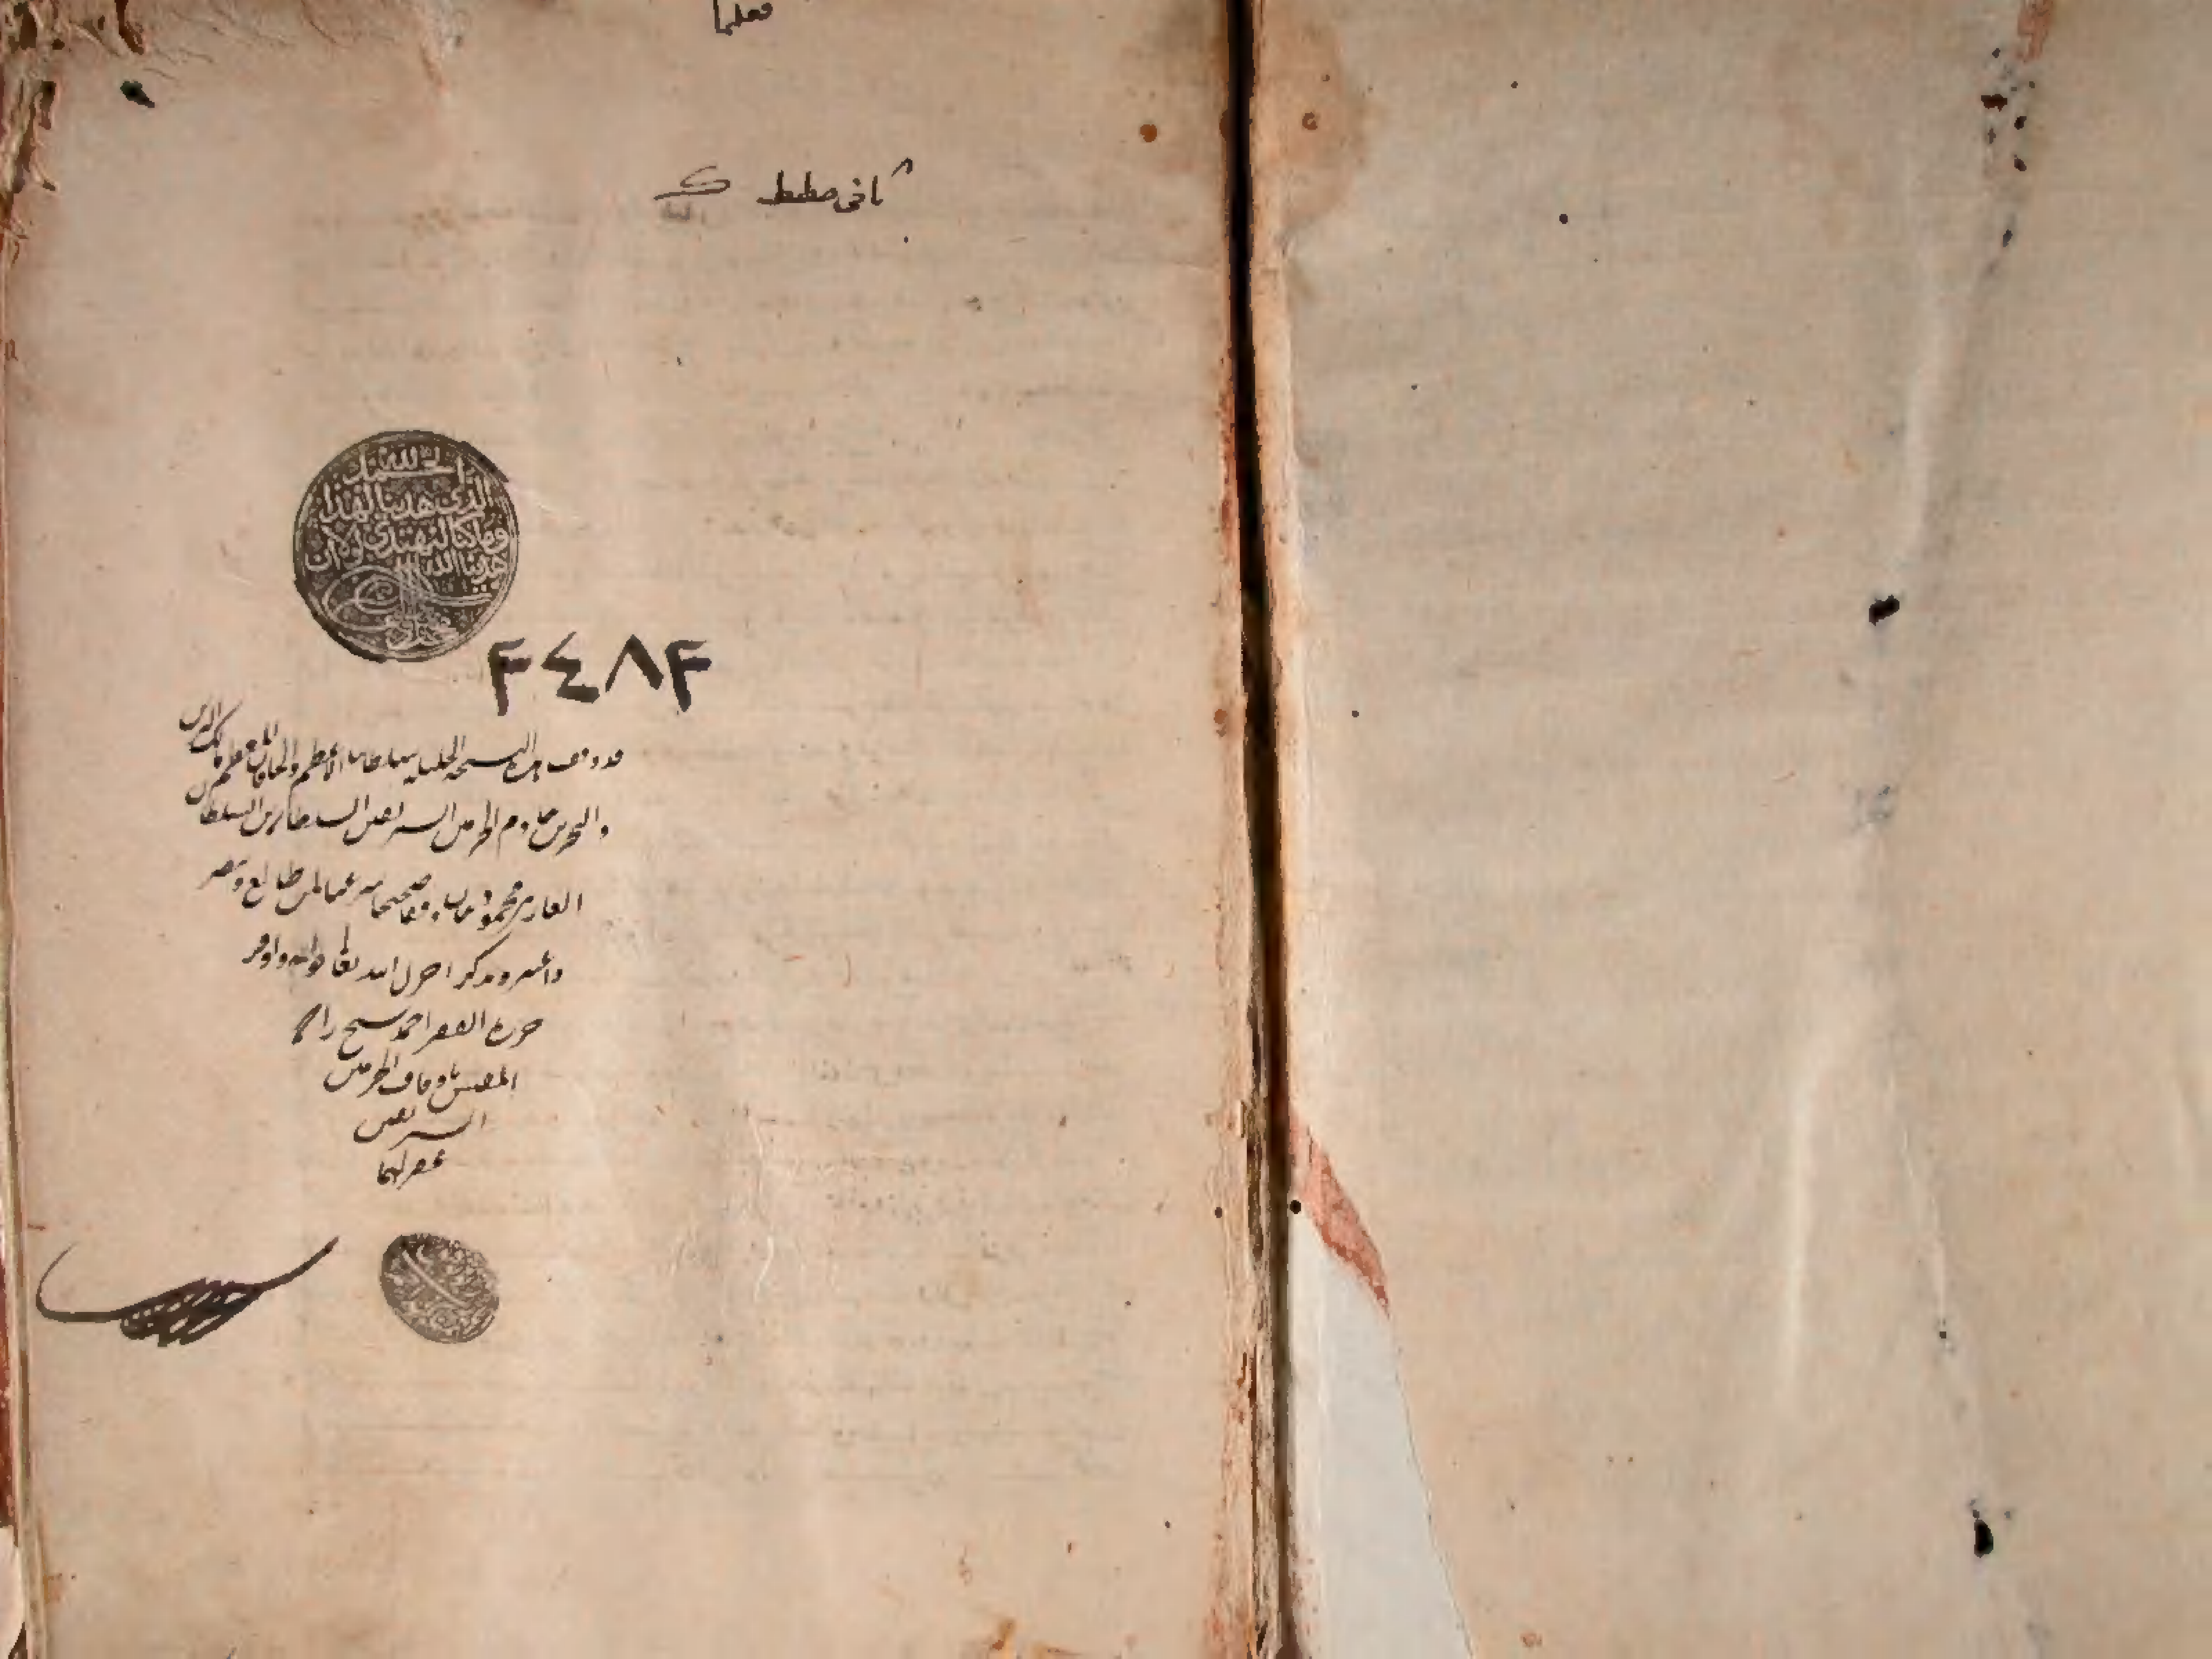 الحمد لله
الذي هدينا لهذا
وما كنا لنهتدي لولا أن
هدينا الله
٢٤٨٢
قد وقف هذه النسخة الجليلة سلطاننا الأعظم والخاقان المعظم مالك البرين
والبحرين خادم الحرمين الشريفين السلطان بن السلطان
الغازي محمود خان وقفا صحيحا شرعيا لمن طالع وتبصر
واعتبر وتذكر اجزل الله تعالى ثوابه واوفر
حرره الفقير احمد شيخ زاده
المفتش باوقاف الحرمين
الشريفين
غفر لهما